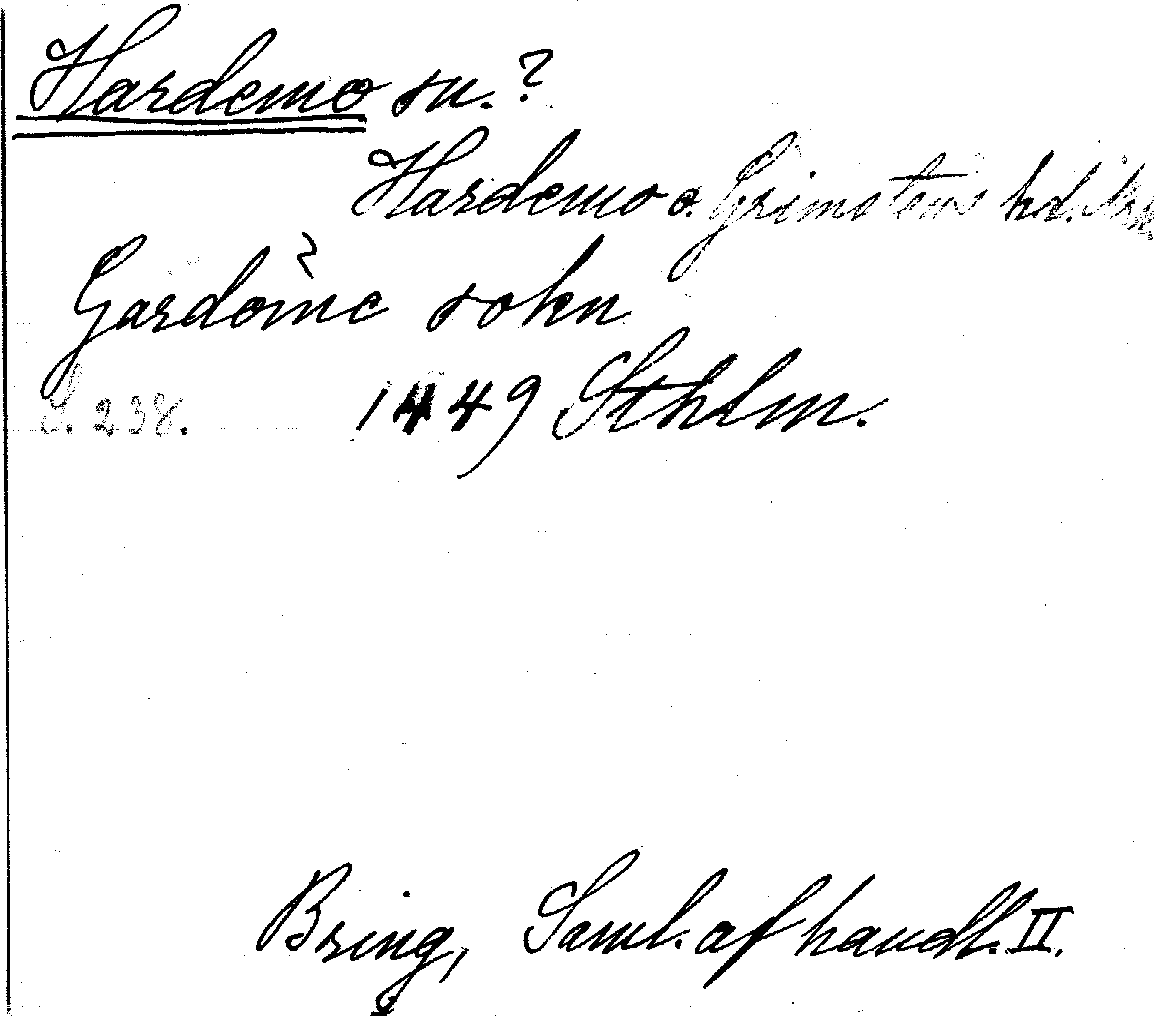 Hardemo sn.?
Hardemo o. Grimstens hd. Nrk
Gardome sokn
S. 238. 1449 Sthlm.
Bring, Saml. af handl. II.